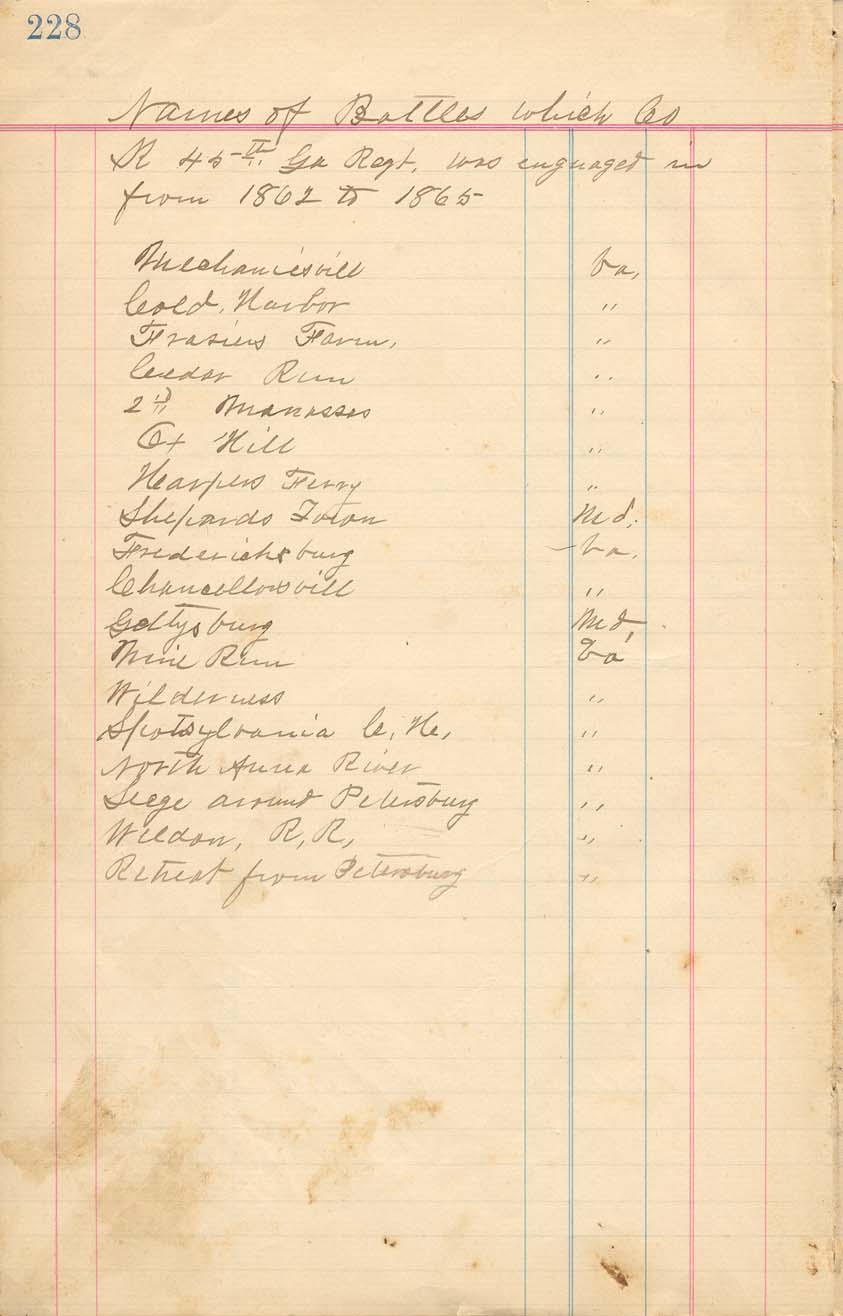 228
Names of Battles which Co
K 45th Ga Regt, was enguaged in
from 1862 to 1865
Mechanicsvill Va,
Cold, Harbor "
Frasiers Farm, "
Ceedar Run "
2d Manassas "
Ox Hill "
Hearpers Ferry "
Shepards Town Md.
Fredericksburg Va.
Chancellorsvill "
Gettysburg Md,
Mine Run Va
Wilderness "
Spotsylvania C, He, "
North Anna River "
Seege around Petersburg "
Weldon, R, R, "
Retreat from Petersburg "